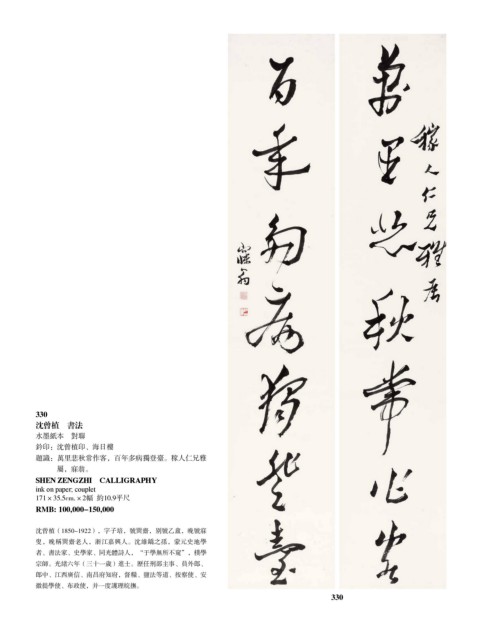 萬里悲秋常作客
稼人仁兄雅屬
百年多病獨登臺
寐翁
330
沈曾植　書法
水墨紙本　對聯
鈐印：沈曾植印、海日樓
題識：萬里悲秋常作客，百年多病獨登臺。稼人仁兄雅
屬，寐翁。
SHEN ZENGZHI　CALLIGRAPHY
ink on paper, couplet
171×35.5cm.×2幅　約10.9平尺
RMB: 100,000-150,000
沈曾植（1850-1922），字子培，號巽齋，別號乙盦，晚號寐
叟，晚稱巽齋老人，浙江嘉興人。沈維鐈之孫，蒙元史地學
者、書法家、史學家、同光體詩人，“于學無所不窺”，碩學
宗師。光緒六年（三十一歲）進士。歷任刑部主事、員外郎、
郎中、江西廣信、南昌府知府，督糧、鹽法等道、按察使、安
徽提學使、布政使，并一度護理皖撫。
330